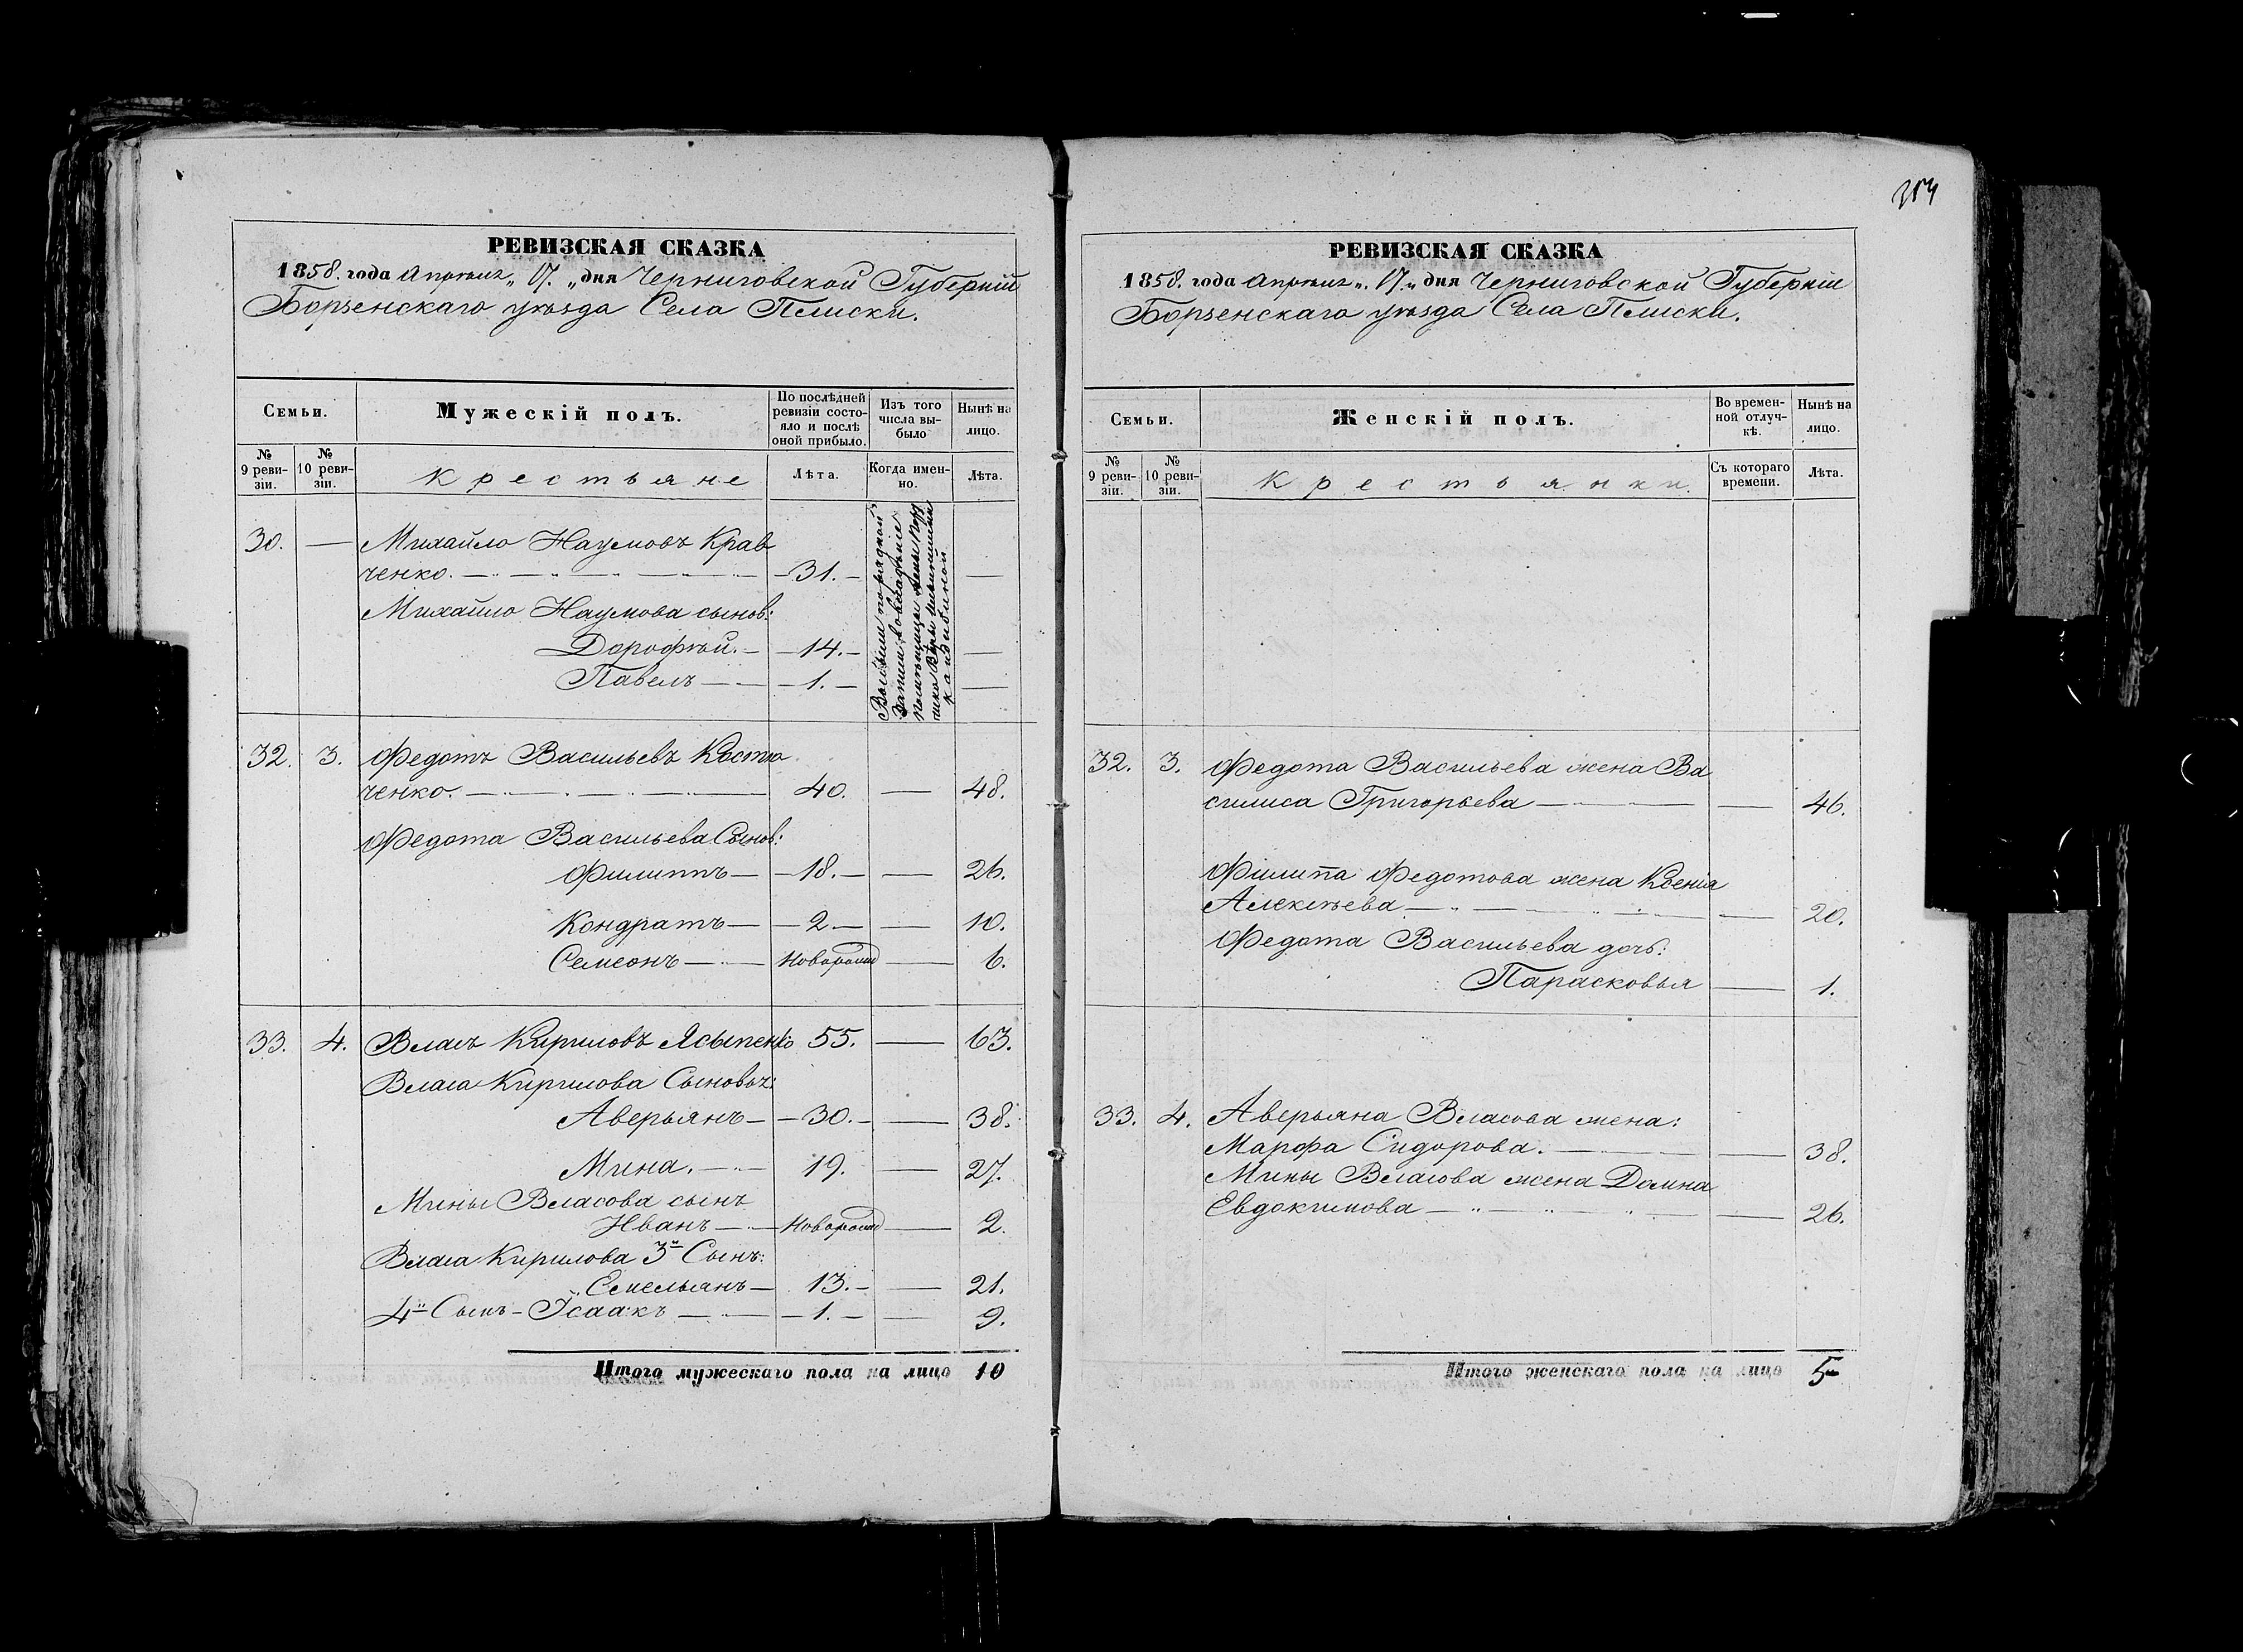 314
РЕВИЗСКАЯ СКАЗКА
1858. года Апреля „17.„ дня Черниговской Губерніи
Борзенскаго уѣзда Села Плиски.
Семьи.
Мужескій полъ.
По послѣдней ревизіи состояло и послѣ оной прибыло.
Изъ того числа выбыло
Нынѣ на лицо.
№ 9 ревизіи.
№ 10 ревизіи.
Крестьяне
Лѣта.
Когда именно.
Лѣта.
30. — Михайло Наумовъ Крав
ченко. — 31. — —
Михайло Наумова сынов:
Дорофѣй. — 14. — —
Павелъ — 1. — —
32. 3. Федотъ Васильевъ Костю
ченко. — 40. — 48.
Федота Васильева Сынов:
Филиппъ — 18. — — 26.
Кондратъ — 2 — — 10.
Семеонъ — Новорожд — 6.
33. 4. Власъ Кириловъ Ясыпенко 55. — 63.
Власа Кирилова Сыновья:
Аверьянъ — 30. — — 38.
Мина. — 19. — 27.
Мины Власова сынъ
Иванъ — Новорожд — 2.
Власа Кирилова 3й Сынъ:
Емельянъ — 13. — — 21.
4й Сынъ - Ісаакъ — 1. — — 9.
Итого мужескаго пола на лицо 10
РЕВИЗСКАЯ СКАЗКА
1858. года Апреля „17„ дня Черниговской Губерніи
Борзенскаго уѣзда Села Плиски.
Семьи.
Женскій полъ.
Во временной отлучкѣ.
Нынѣ на лицо.
№ 9 ревизіи.
№ 10 ревизіи.
Крестьянки.
Съ котораго времени.
Лѣта.
32. 3. Федота Васильева жена Ва
силиса Григорьева — — 46.
Филипа Федотова жена Ксенія
Алексѣева — — 20.
Федота Васильева дочь:
Парасковья — 1.
33. 4. Аверьяна Власова жена:
Марфа Сидорова. — — 38.
Мины Власова жена Домна
Евдокимова — — 26.
Итого женскаго пола на лицо 5